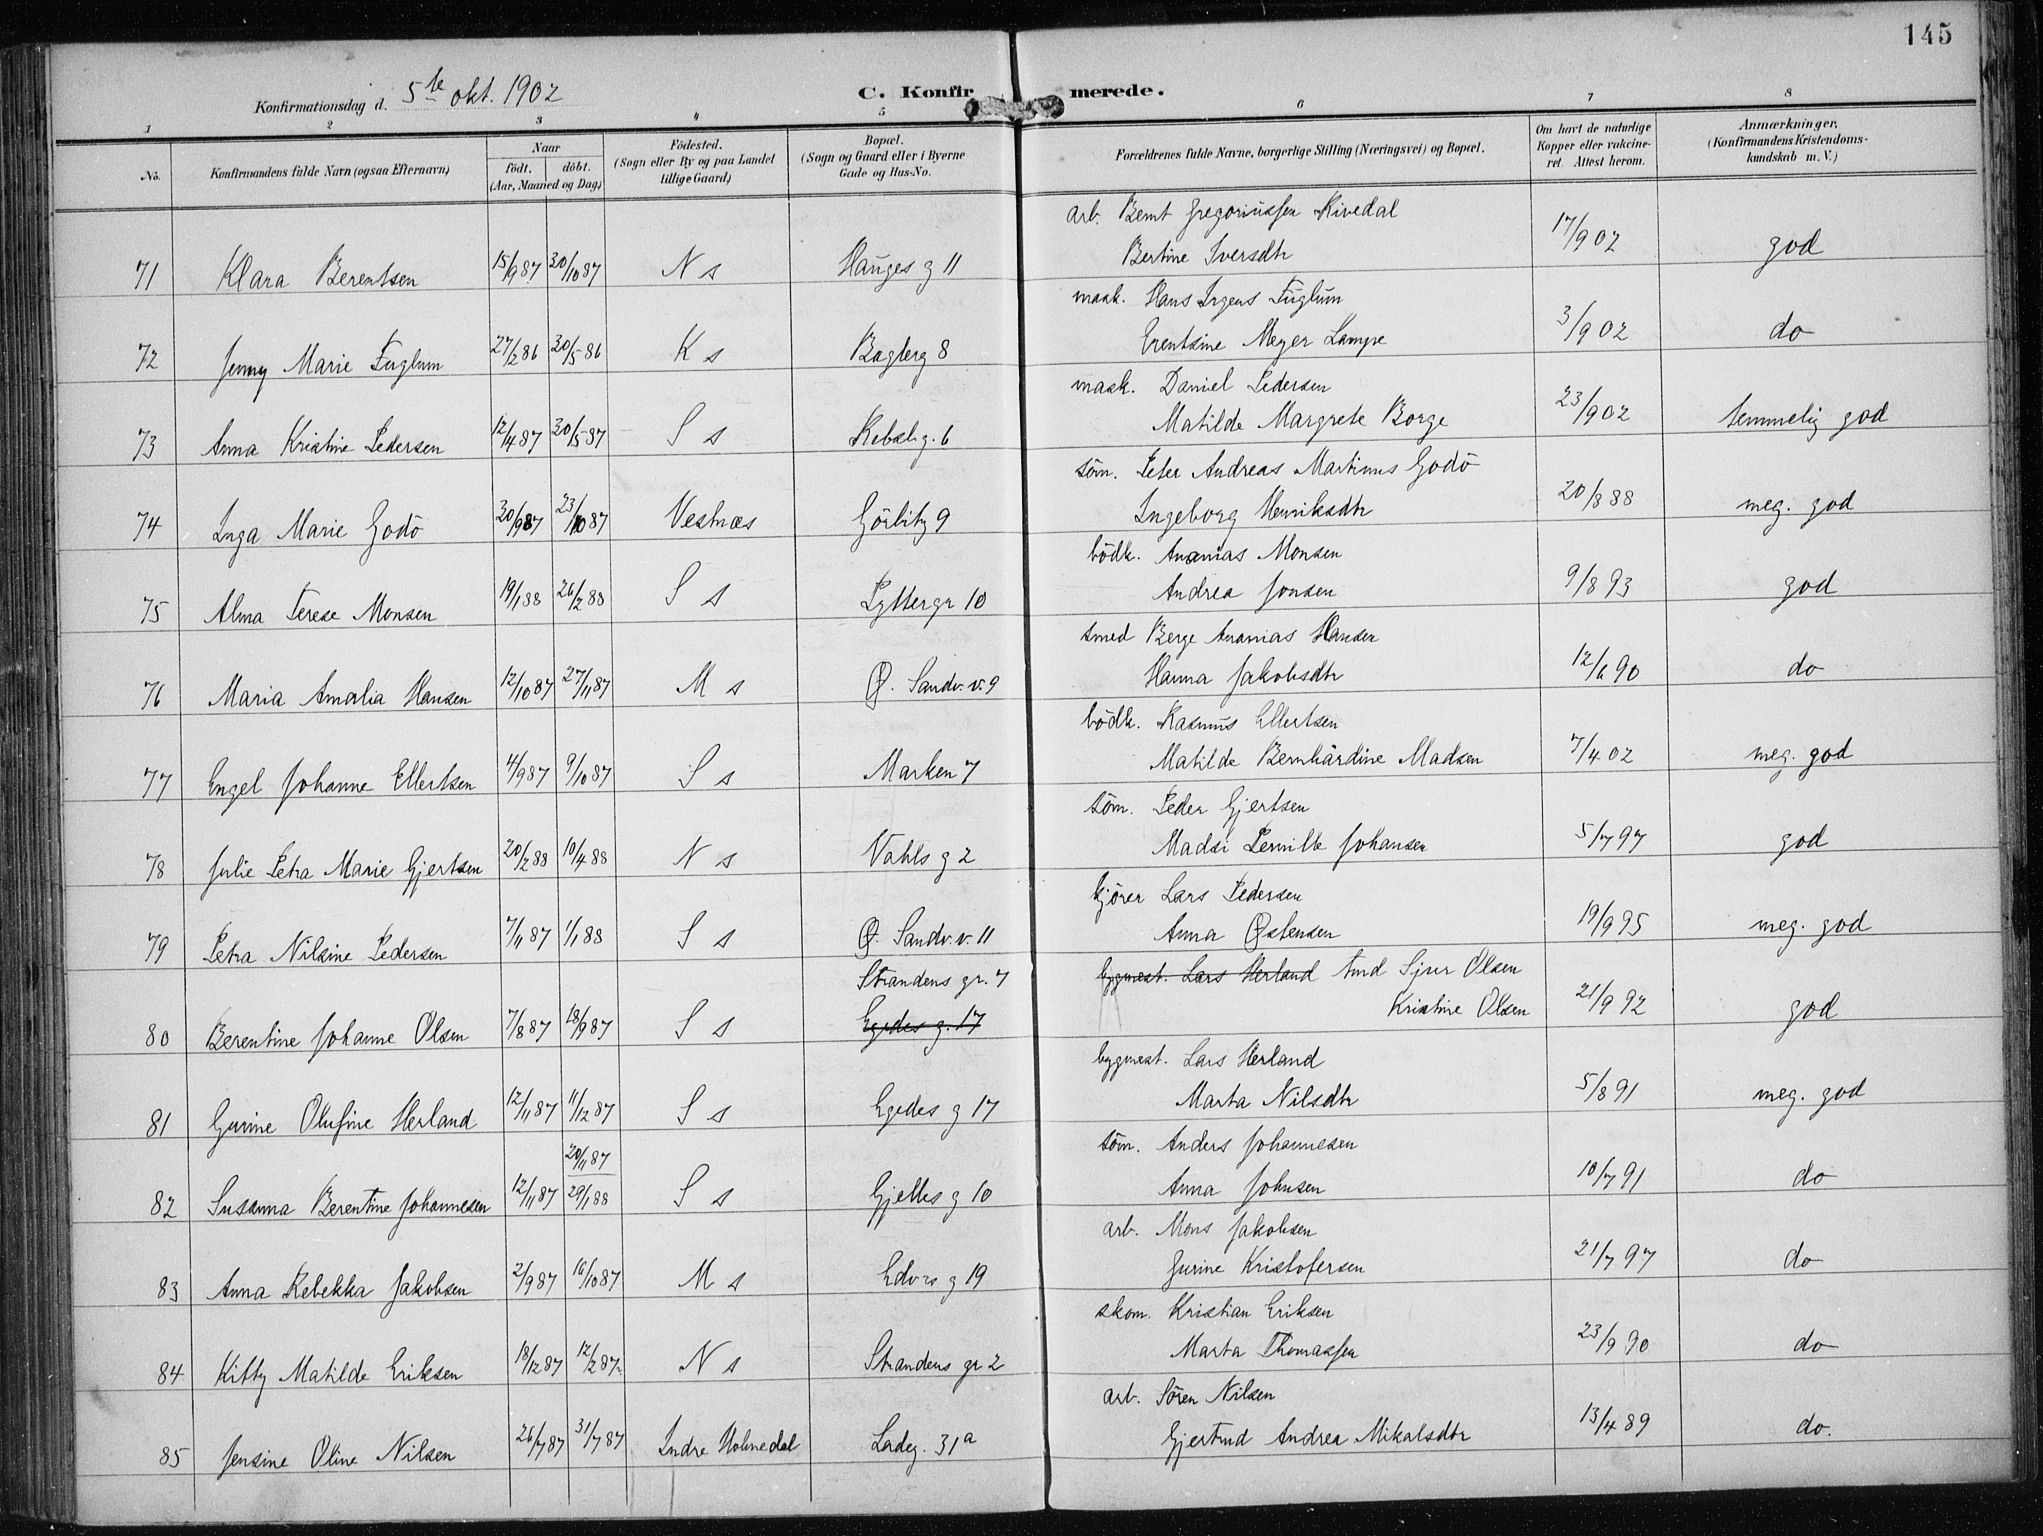 145
Konfirmationsdag d. 5te okt. 1902
C. Konfirmerede.
1 2 3 4 5 6 7 8
No.
Konfirmandens fulde Navn (ogsaa Efternavn)
Naar
födt. döbt.
(Aar, Maaned og Dag)
Födested.
(Sogn eller By og paa Landet
tillige Gaard)
Bopæl.
(Sogn og Gaard eller i Byerne
Gade og Hus-No.
Forældrenes fulde Navne, borgerlige Stilling (Næringsvei) og Bopæl.
Om havt de naturlige
Kopper eller vakcine-
ret. Attest herom.
Anmærkninger.
(Konfirmandens Kristendoms-
kundskab m. V.)
arb. Bernt Gregoriussen Kivedal
71 Klara Berentsen 15/9 87 30/10 87 N s Hauges g 11 Bertine Iversdtr 17/9 02 god
mask. Hans Irgens Fuglum
72 Jenny Marie Fuglum 27/2 86 20/5 86 K s Baglerg 8 Erentsine Meyer Lampe 3/9 02 do
mask. Daniel Pedersen
73 Anna Kristine Pedersen 12/4 87 20/5 87 S s Rebslg. 6 Matilde Margrete Borge 23/9 02 temmelig god
söm. Peter Andreas Martinus Godö
74 Inga Marie Godö 20/9 87 23/10 87 Vestnæs Görbitz 9 Ingeborg Henriksdtr 20/8 88 meg. god
bödk. Ananias Monsen
75 Alma Terese Monsen 19/1 88 26/2 88 S s Lyttergr 10 Andrea Jonsen 9/8 93 god
smed Berge Ananias Hansen
76 Maria Amalia Hansen 12/10 87 27/11 87 M s Ø. Sandv. v. 9 Hanna Jakobsdtr 12/6 90 do
bödk. Rasmus Ellertsen
77 Engel Johanne Ellertsen 4/9 87 9/10 87 S s Marken 7 Matilde Bernhardine Madsen 7/4 02 meg. god
söm. Peder Gjertsen
78 Julie Petra Marie Gjertsen 20/2 88 10/4 88 N s Vahls g 2 Madsi Pernille Johansen 5/7 97 god
kjörer Lars Pedersen
79 Petra Nilsine Pedersen 7/11 87 1/1 88 S s Ø. Sandv. v. 11 Anna Østensen 19/9 95 meg. god
Strandens gr. 7 bygmest. Lars Herland tmd Sjur Olsen
80 Berentine Johanne Olsen 7/8 87 18/9 87 S s Egedes g. 17 Kristine Olsen 21/9 92 god
bygmest. Lars Herland
81 Gurine Olufine Herland 12/11 87 11/12 87 S s Egedes g 17 Marta Nilsdtr 5/8 91 meg. god
20/11 87 söm. Anders Johannesen
82 Susanna Berentine Johannesen 12/11 87 29/1 88 S s Gjelles g 10 Anna Johnsen 10/7 91 do
arb. Mons Jakobsen
83 Anna Rebekka Jakobsen 2/9 87 16/10 87 M s Edvrs g 19 Gurine Kristofersen 21/7 97 do
skom. Kristian Eriksen
84 Kitty Matilde Eriksen 18/12 87 12/2 87 N s Strandens gr 2 Marta Thomassen 23/9 90 do
arb. Sören Nilsen
85 Jensine Oline Nilsen 26/7 87 31/7 87 Indre Holmedal Ladeg. 31a Gjertrud Andrea Mikalsdtr 13/4 89 do.